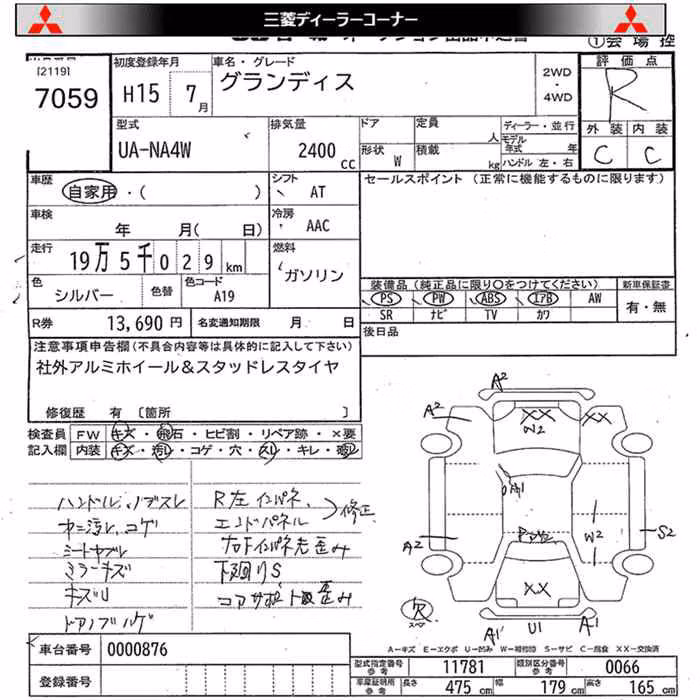 三菱ディーラーコーナー
①会場控
[2119]
7059
初度登録年月
H15 7月
車名・グレード
グランディス
2WD
・
4WD
評価点
R
外装 内装
C C
型式
UA-NA4W
排気量
2400 cc
ドア
形状 W
定員 人
積載 kg
ディーラー・並行
モデル年式 年
ハンドル 左・右
車歴
自家用・( )
シフト
AT
セールスポイント (正常に機能するものに限ります)
車検
年 月( 日)
冷房
AAC
走行
19万5千029km
燃料
ガソリン
色
シルバー
色替
色コード
A19
装備品(純正品に限り○をつけてください)
PS PW ABS エアB AW
SR ナビ TV カワ
新車保証書
有・無
R券 13,690円 名変通知期限 月 日
後日品
注意事項申告欄(不具合内容等は具体的に記入して下さい)
社外アルミホイール&スタッドレスタイヤ
修復歴 有 [箇所 ]
検査員
記入欄
FW キズ・飛石・ヒビ割・リペア跡・×要
内装 キズ・汚レ・コゲ・穴・スレ・キレ・
ハンドル、ノブスレ
汚レ、コゲ
シートヤブレ
ミラーキズ
キズU
R左インパネ、
エンドパネル
修正
右F インパネ先歪み
下廻りS
コアサポート歪み
A2
A2
XX
W2
XX
A1
A2
W2
S2
XX
欠
スペア
A1
U1
A1
A-キズ E-エクボ U-凹み W-補修跡 S-サビ C-腐食 XX-交換済
車台番号 0000876
登録番号
型式指定番号 参考 11781 類別区分番号 参考 0066
車庫証明用 参考 長さ 475cm 幅 179cm 高さ 165cm